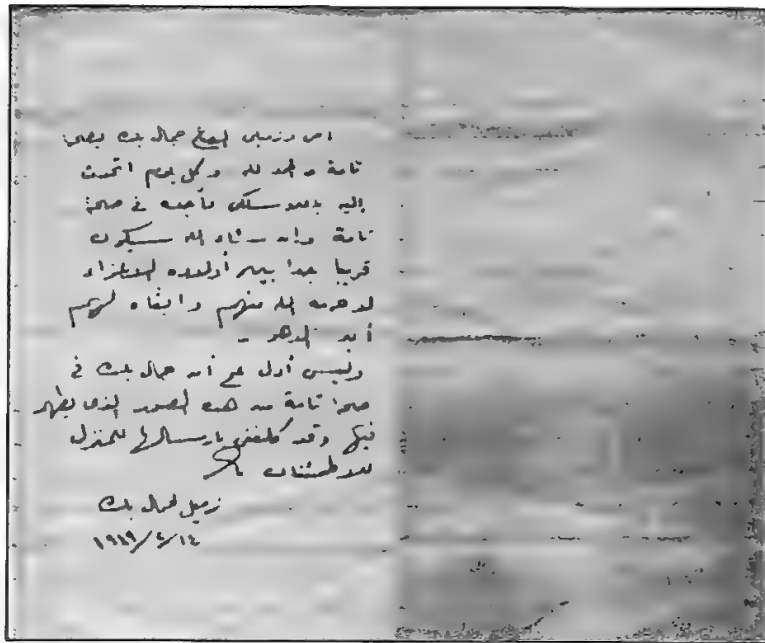 اخى وزميلى الصاغ جمال بك بصحة
تامة والحمد لله وكل يوم اتحدث
إليه باللاسلكى فأجده فى صحة
تامة وان شاء الله سيكون
قريبا جدا بين أولاده الاعزاء
لاحرمه الله منهم وابقاه لهم
أبد الدهر -
وليس أدل على أن جمال بك فى
صحة تامة من هذه الصور الذى يظهر
فيها وقد كلفنى بارسالها للمنزل
للاطمئنان
زميل لجمال بك
١٩٤٩/٢/١٤